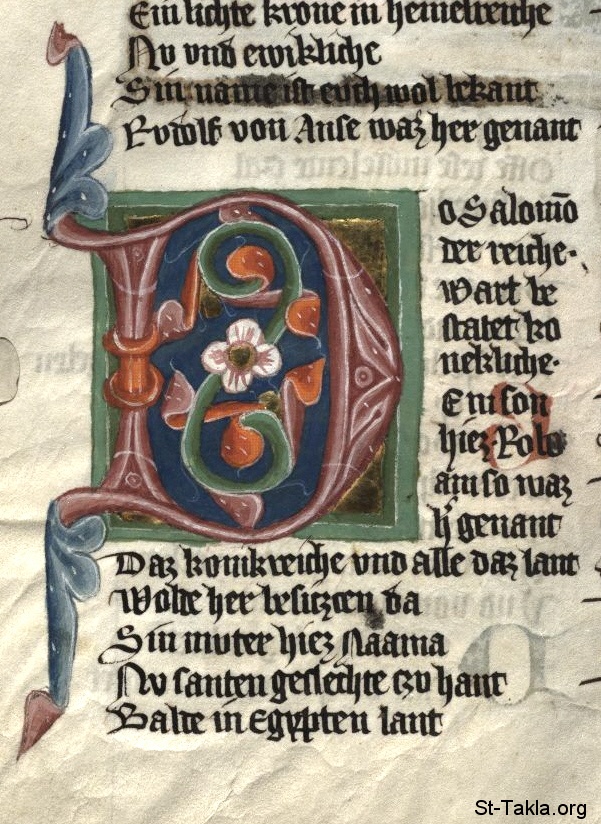 Ein lichte krone in hemelreiche
Nv vnd ewikliche
Sin name ist euch wol bekant
Rvdolf von Anse waz her genant
Do Salomō
der reiche·
wart be
statet ko
nekliche·
Ein son
hiez Robo
am so waz
h' genant
Daz konikreiche vnd alle daz lant
Wolde her besitzcen da
Sin muter hiez Naama
Nv santen geslechte czv hant
Balde in Egypten lant
St-Takla.org